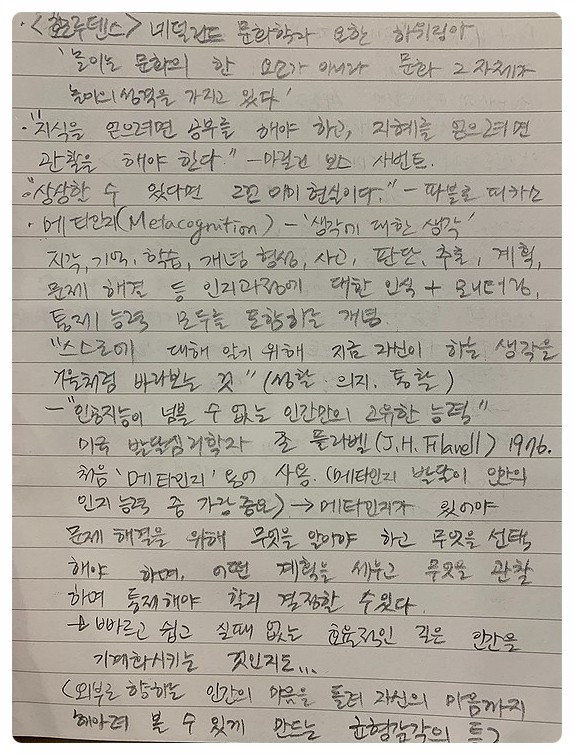 · <호모루덴스> 네덜란드 문화학자 요한 하위징아
'놀이는 문화의 한 요소가 아니라 문화 그 자체가
놀이의 성격을 가지고 있다'
· "지식을 얻으려면 공부를 해야 하고, 지혜를 얻으려면
관찰을 해야 한다." - 마릴린 보스 사번트.
· "상상할 수 있다면 그건 이미 현실이다." - 파블로 피카소
· 메타인지(Metacognition) - '생각에 대한 생각'
지각, 기억, 학습, 개념 형성, 사고, 판단, 추출, 계획,
문제 해결 등 인지과정에 대한 인식 + 모니터링,
통제 능력 모두를 포함하는 개념.
"스스로에 대해 알기 위해 지금 자신이 하는 생각을
거울처럼 바라보는 것" (성찰 · 의지, 통찰)
- "인공지능이 넘볼 수 없는 인간만의 고유한 능력"
미국 발달심리학자 존 플라벨(J.H. Flavell) 1976.
처음 '메타인지' 용어 사용. (메타인지 발달이 인간의
인지 능력 중 가장 중요) → 메타인지가 있어야
문제 해결을 위해 무엇을 알아야 하고 무엇을 선택
해야 하며, 어떤 계획을 세우고 무엇을 관찰
하며 통제해야 할지 결정할 수 있다.
→ 빠르고 쉽고 실패 없는 효율적인 길은 인간을
기계화시키는 것인지도...
(외부로 향하는 인간의 마음을 돌려 자신의 마음까지
헤아려 볼 수 있게 만드는 균형감각의 틀)